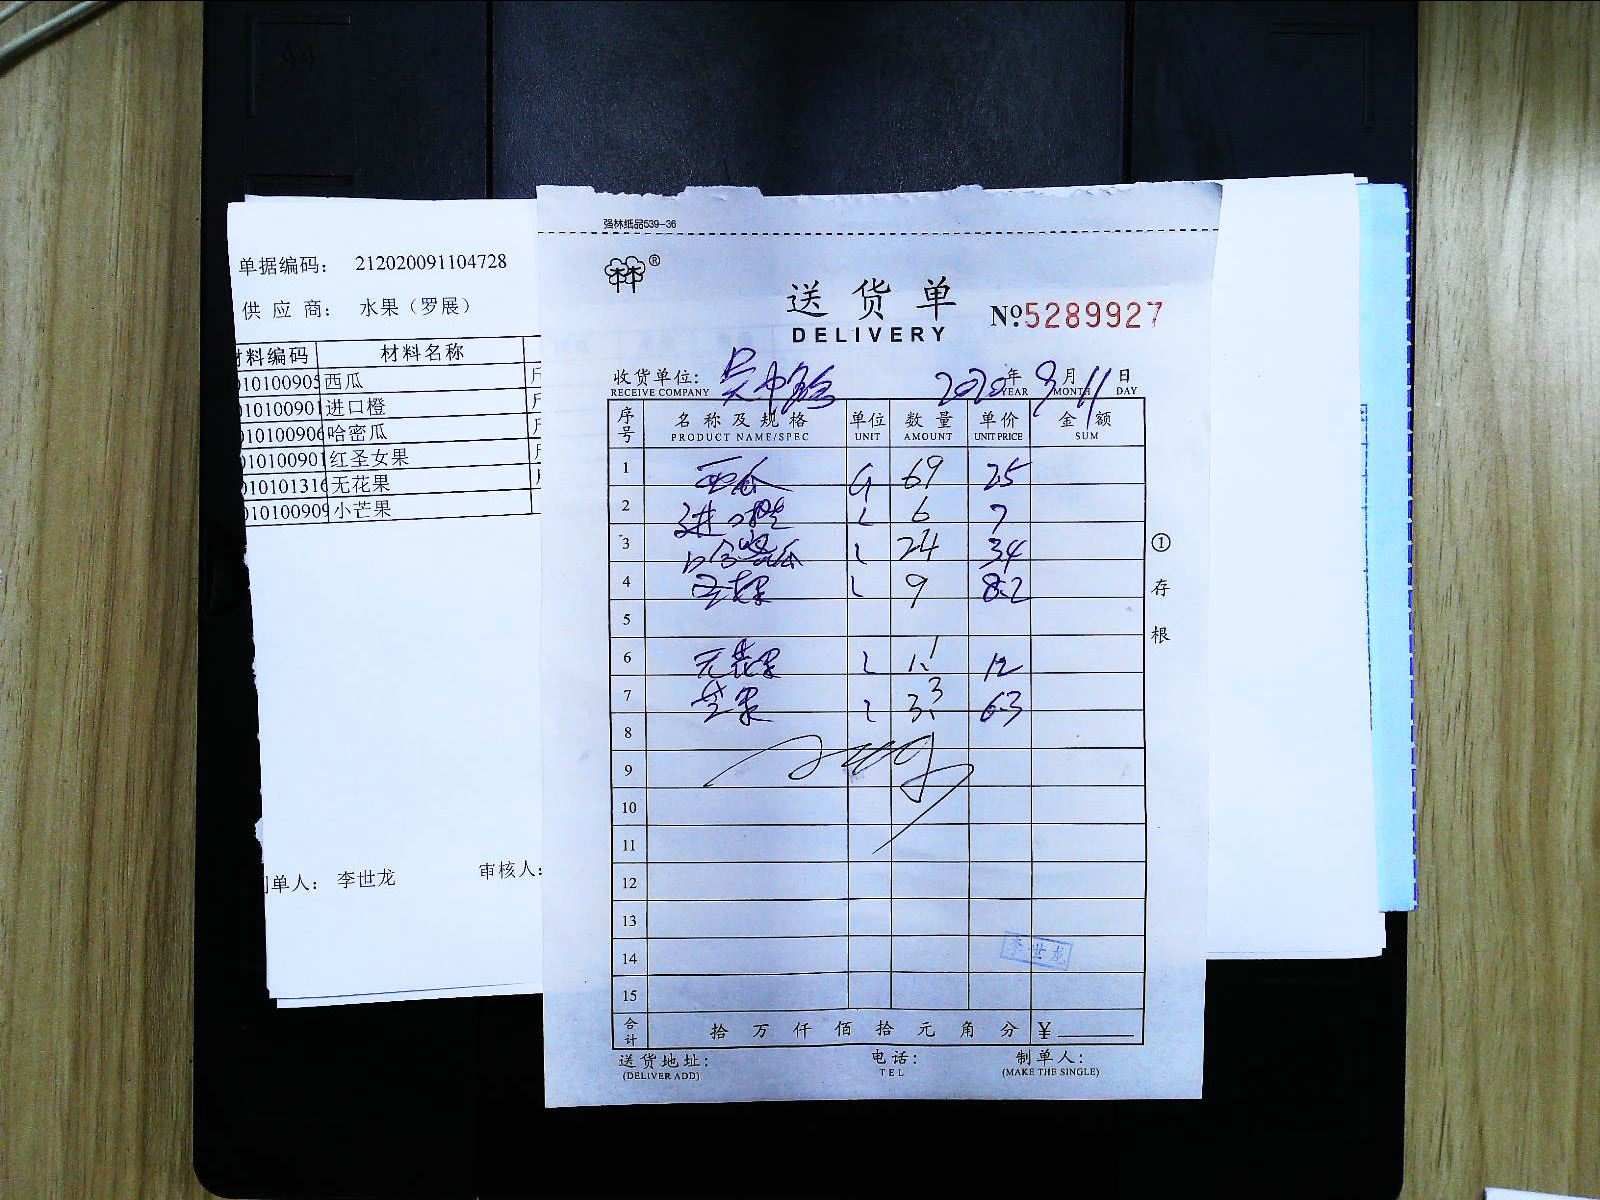 单据编码： 212020091104728
供 应 商： 水果（罗展）
材料编码 材料名称
010100905 西瓜 斤
010100901 进口橙 斤
010100906 哈密瓜 斤
010100901 红圣女果 斤
010101316 无花果
010100909 小芒果
单人： 李世龙 审核人：
强林纸品539-36
林®
送货单
DELIVERY
№5289927
收货单位：
RECEIVE COMPANY
2020年9月11日
YEAR MONTH DAY
序号 名称及规格 单位 数量 单价 金额
PRODUCT NAME/SPEC UNIT AMOUNT UNIT PRICE SUM
1 西瓜 69 25
2 进口橙 6 7
3 哈密瓜 24 34
4 圣女果 9 8.2
5
6 无花果 1.1 12
7 芒果 3.3 6.3
8
9
10
11
12
13
14
李世龙
15
合计 拾 万 仟 佰 拾 元 角 分 ￥
送货地址： 电话： 制单人：
(DELIVER ADD) TEL (MAKE THE SINGLE)
①存根